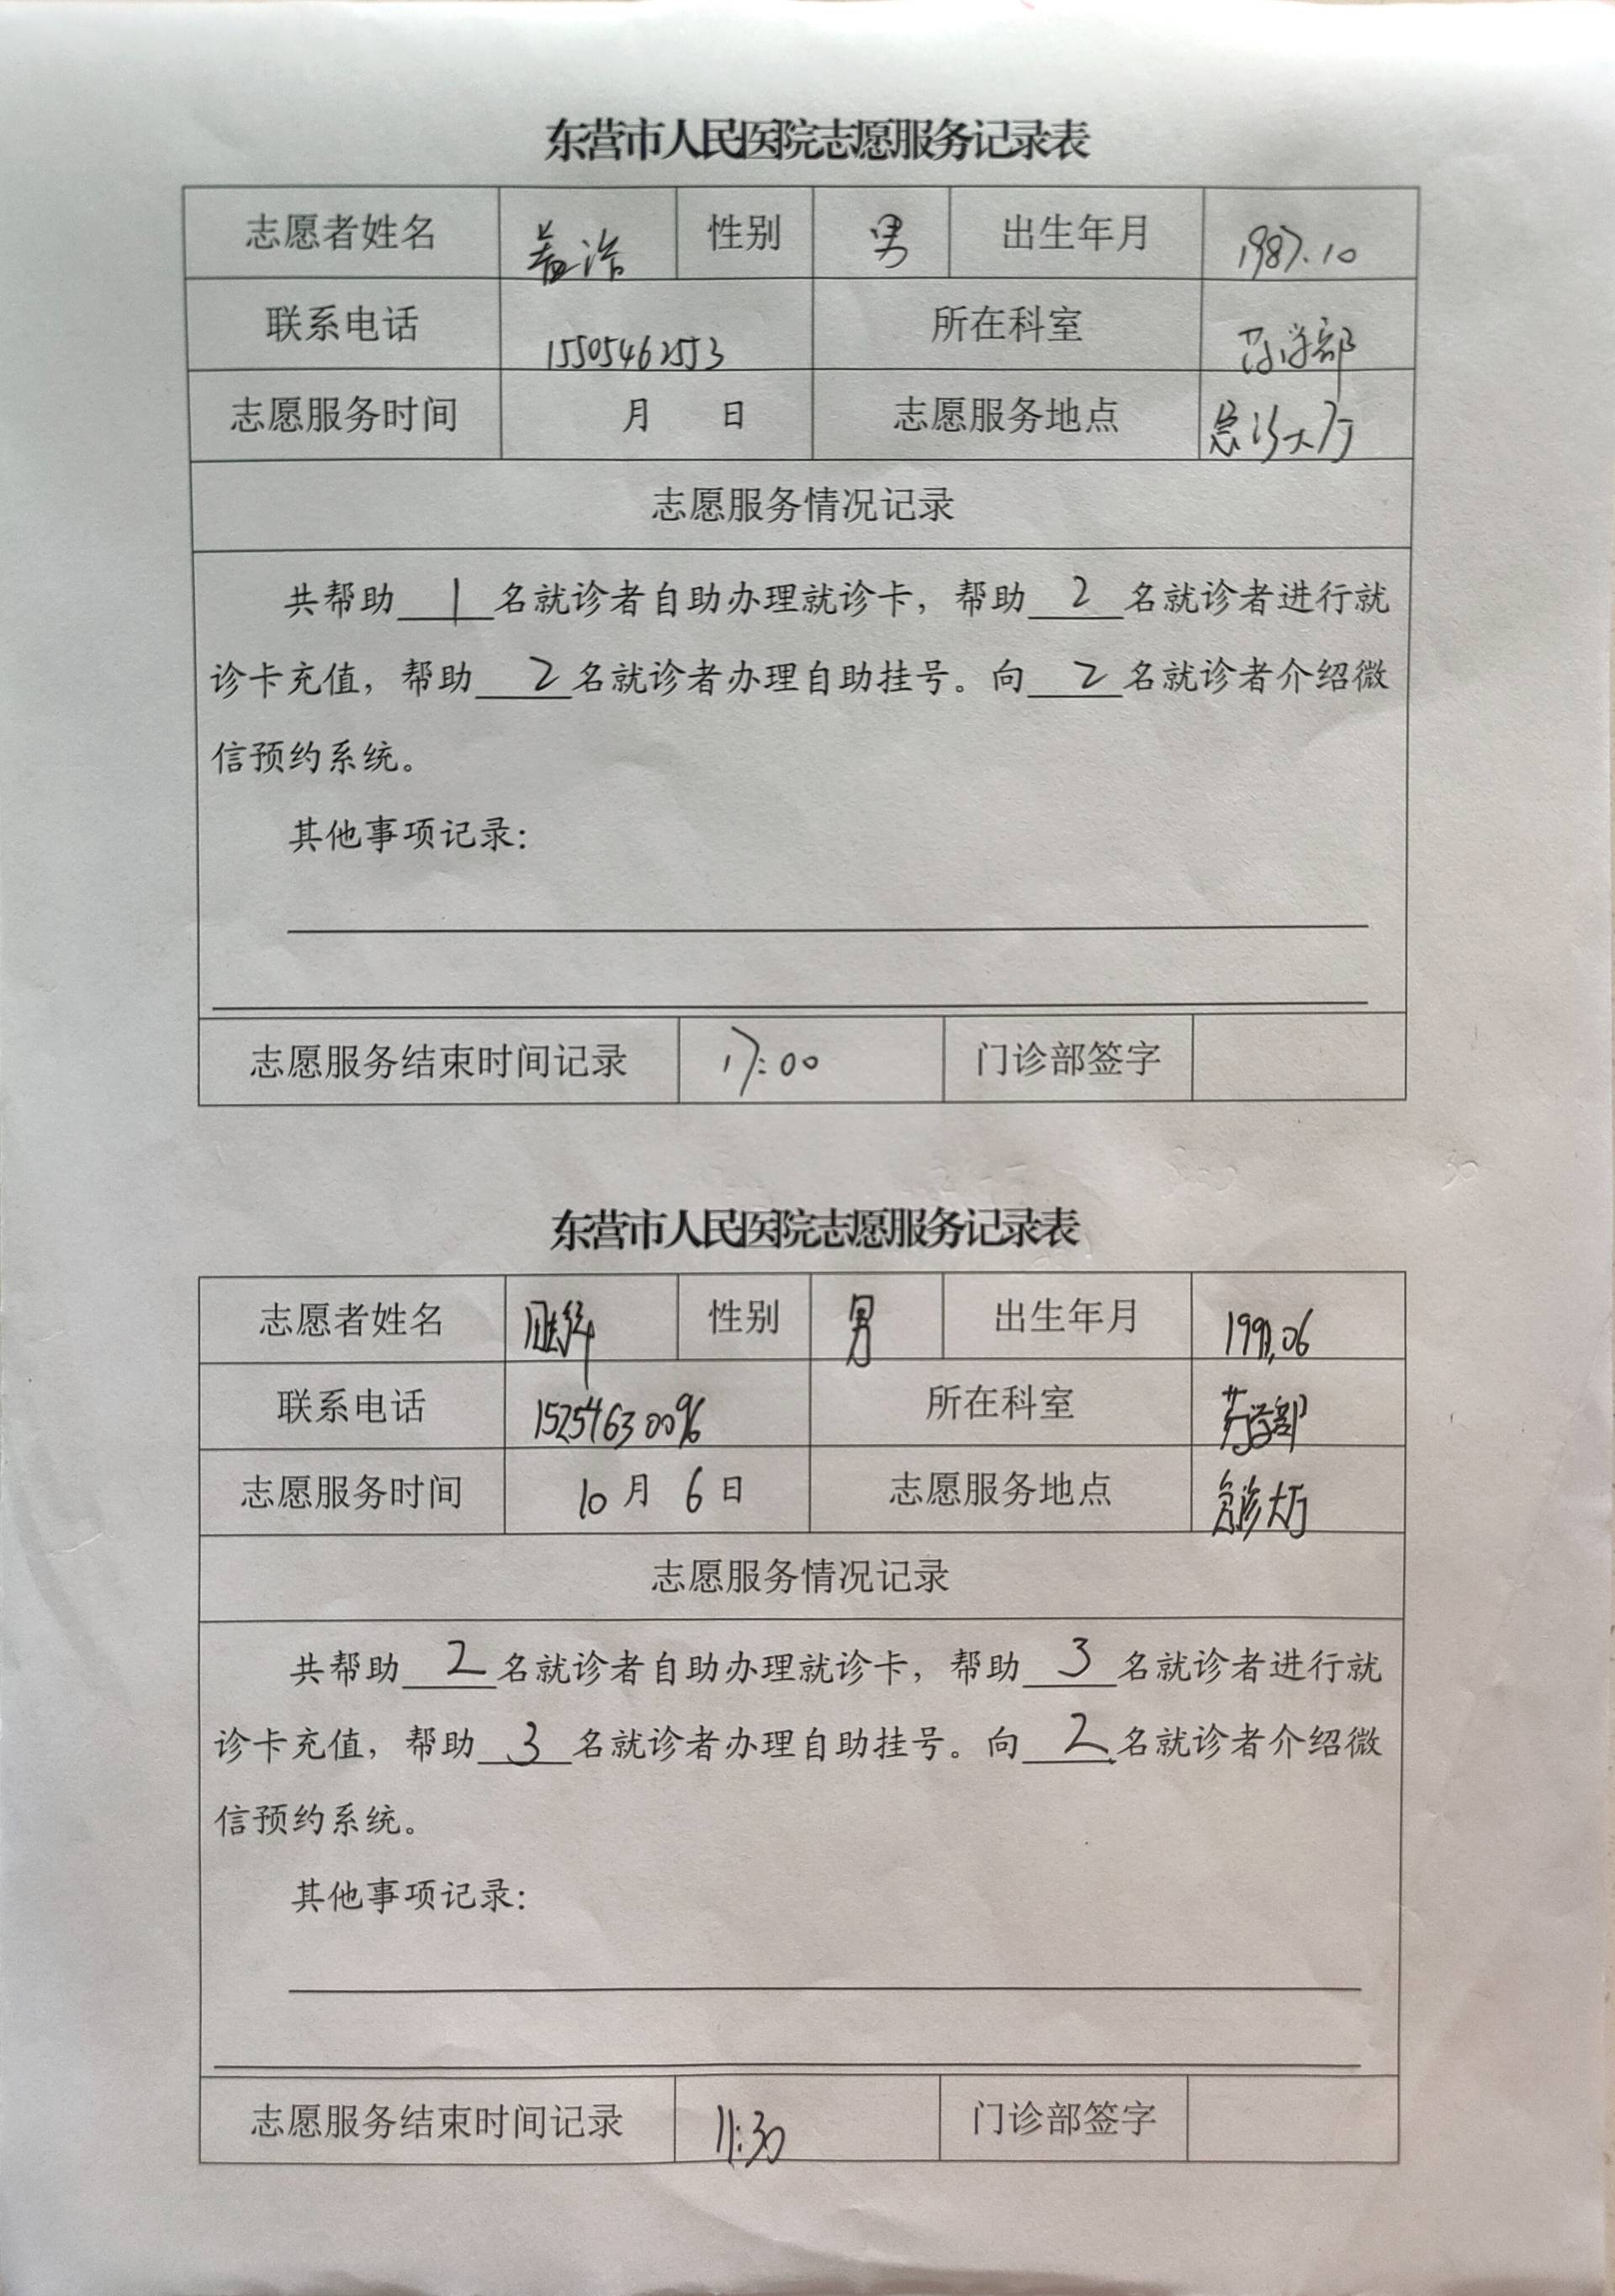 东营市人民医院志愿服务记录表
志愿者姓名 盖浩 性别 男 出生年月 1987.10
联系电话 15505462553 所在科室 药学部
志愿服务时间 月 日 志愿服务地点 急诊大厅
志愿服务情况记录
共帮助 1 名就诊者自助办理就诊卡，帮助 2 名就诊者进行就
诊卡充值，帮助 2 名就诊者办理自助挂号。向 2 名就诊者介绍微
信预约系统。
其他事项记录：
志愿服务结束时间记录 17:00 门诊部签字
东营市人民医院志愿服务记录表
志愿者姓名 性别 男 出生年月
联系电话 15254630096 所在科室 药学部
志愿服务时间 10月 6日 志愿服务地点 急诊大厅
志愿服务情况记录
共帮助 2 名就诊者自助办理就诊卡，帮助 3 名就诊者进行就
诊卡充值，帮助 3 名就诊者办理自助挂号。向 2 名就诊者介绍微
信预约系统。
其他事项记录：
志愿服务结束时间记录 11:30 门诊部签字